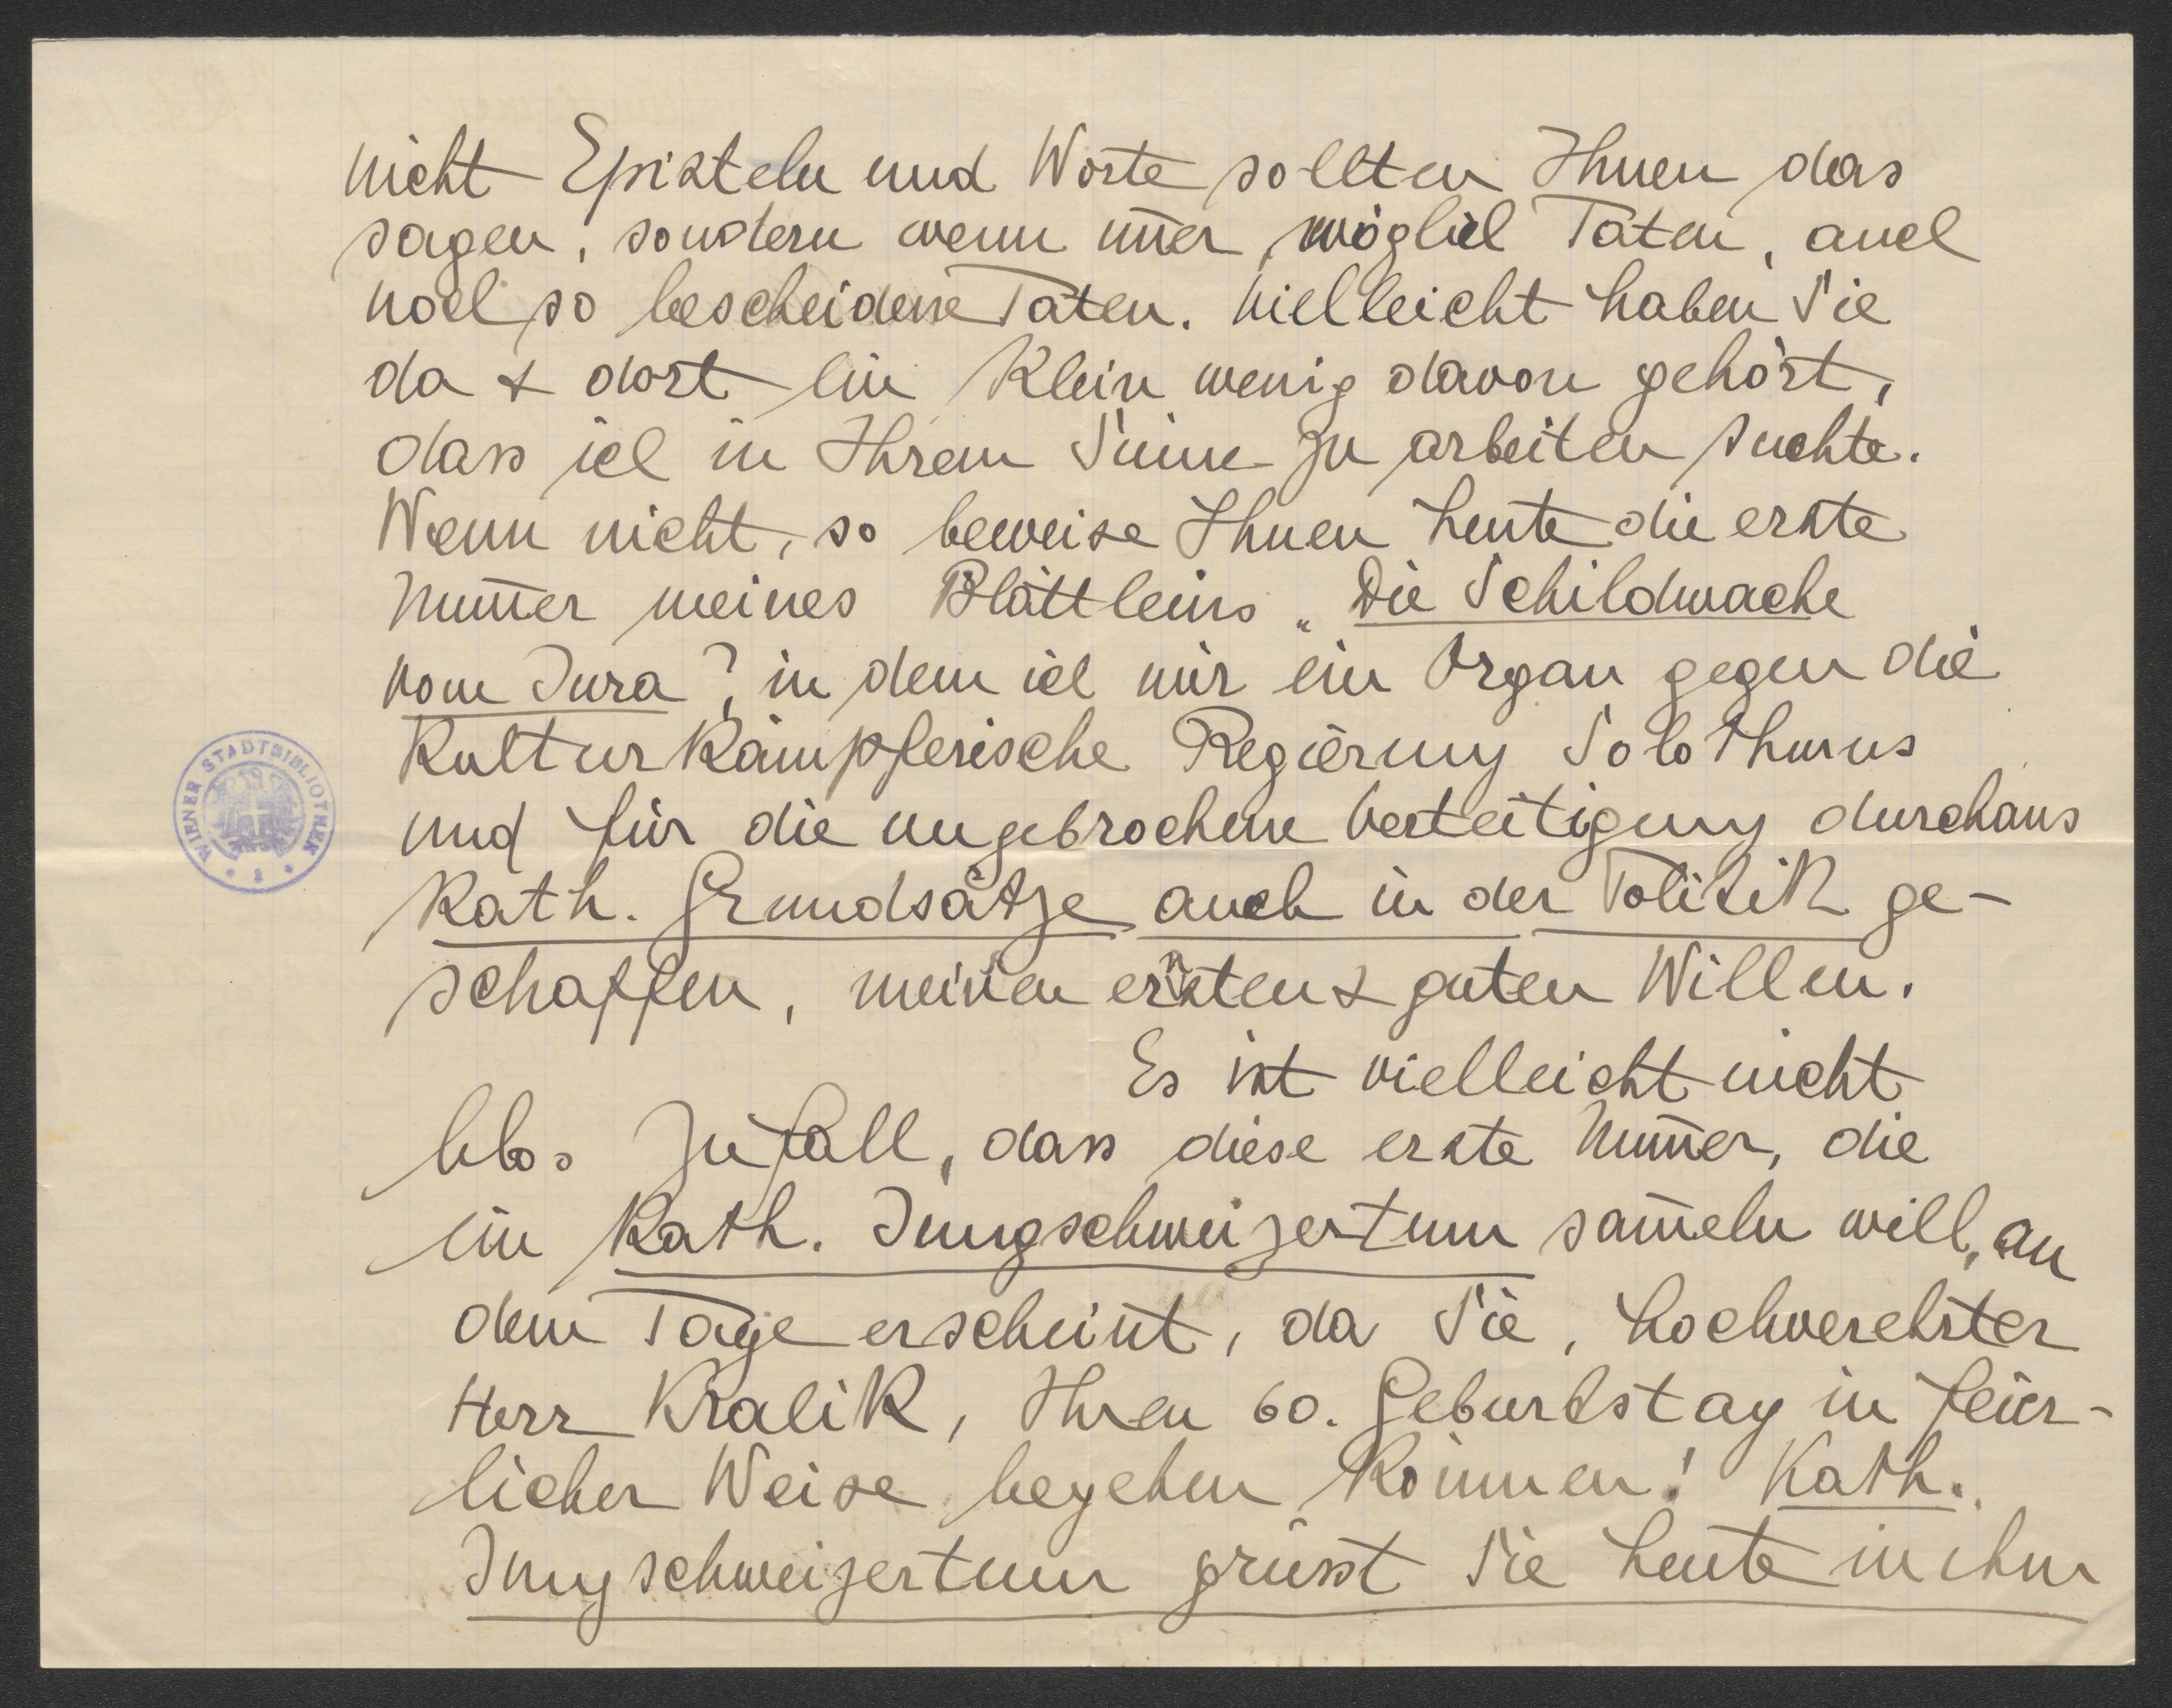 nicht Episteln und Worte sollten Ihnen das
sagen, sondern wenn im̅er möglich Taten, auch
noch so bescheidene Taten. Vielleicht haben Sie
da & dort ein klein wenig davon gehört,
dass ich in Ihrem Sinne zu arbeiten suchte.
Wenn nicht, so beweise Ihnen heute die erste
Num̅er meines Blättleins „Die Schildwache
vom Jura", in dem ich mir ein Organ gegen die
kulturkämpferische Regierung Solothurns
und für die ungebrochene Verteitigung durchaus
kath. Grundsätze auch in der Politik ge-
schaffen, meinen ernsten & guten Willen.
Es ist vielleicht nicht
blos Zufall, dass diese erste Num̅er, die
ein kath. Jungschweizertum sam̅eln will, an
dem Tage erscheint, da Sie, hochverehrter
Herr Kralik, Ihren 60. Geburtstag in feier-
licher Weise begehen können! Kath.
Jungschweizertum grüsst Sie heute in ihm
WIENER STADTBIBLIOTHEK